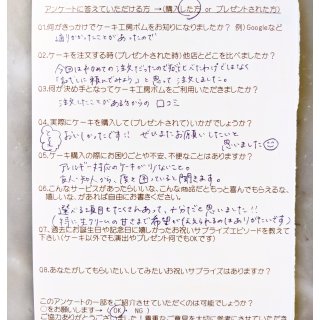 アンケートに答えていただける方 →(購入した方 or プレゼントされた方)
01.何がきっかけでケーキ工房ボムをお知りになりましたか? 例)Googleなど
通りかかったことがあったので
02.ケーキを注文する時(プレゼントされた時)他店とどこを比べましたか?
今回は初めての注文だったので較べたわけではなく
「お試しに頼んでみよう」と思って注文しました。
03.何が決め手となってケーキ工房ボムをご利用いただきましたか?
注文したことがある方からの 口コミ
04.実際にケーキを購入して(プレゼントされて)いかがでしょうか?
おいしかったです!! ぜひまたお願いしたいと
思いました
05.ケーキ購入の際にお困りごとや不安、不便なことはありますか?
アレルギー対応のケーキが少ないこと。
友人・知人から、度々困っていると聞きます。
06.こんなサービスがあったらいいな、こんな商品だともっと喜んでもらえるな、
嬉しいな、があれば自由にお書きください。
選べる項目もたくさんあって、十分だと思いました!!
(特に生クリームの甘さまで希望が伝えられるのはありがたいです)
07.過去にお誕生日や記念日に嬉しかったお祝いサプライズエピソードを教えて
下さい(ケーキ以外でも演出やプレゼント何でもOKです)
08.あなたがしてもらいたい、してみたいお祝いサプライズはありますか?
このアンケートの一部をご紹介させていただくのは可能でしょうか?
〇をお願いします→ (OK) NG )
ご協力ありがとうございました!貴重なご意見を大切に参考にさせていただき